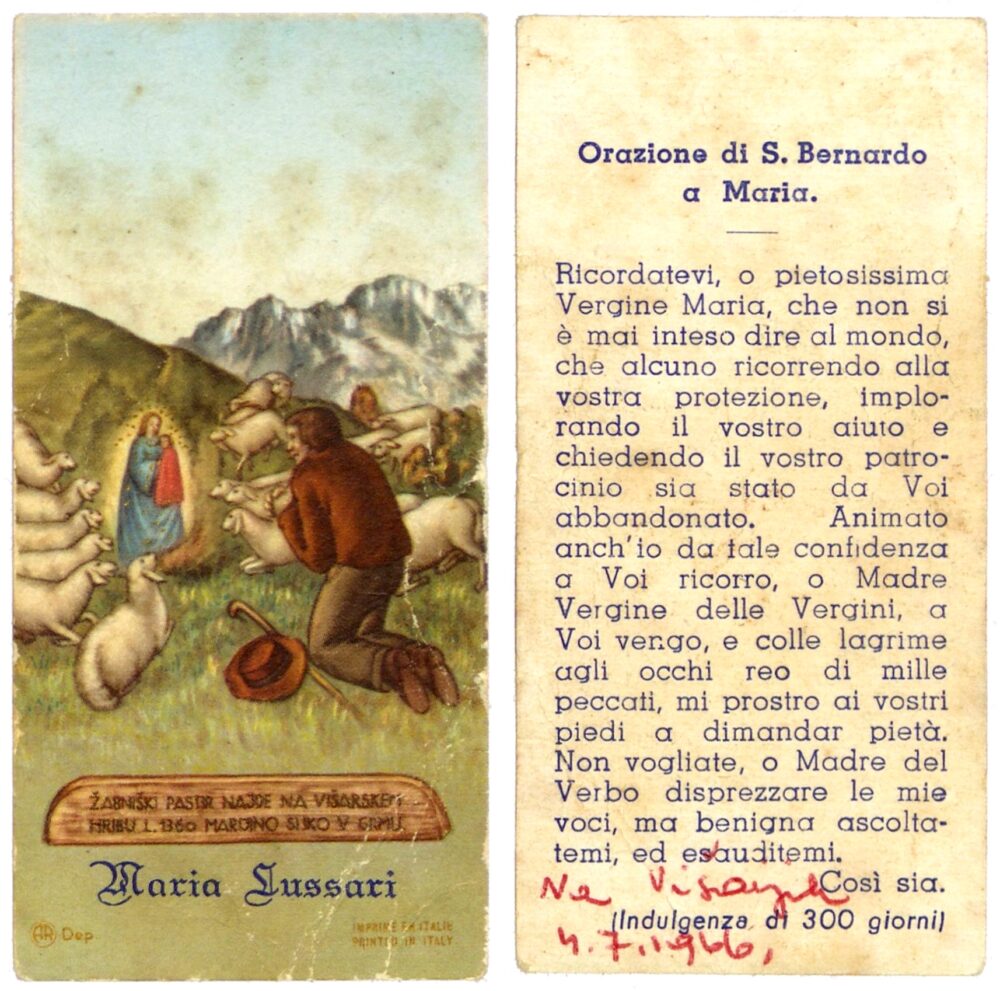 ŽABNIŠKI PASTIR NAJDE NA VIŠARSKEM
HRIBU L. 1360 MARIJINO SLIKO V GRMU.
Maria Lussari
AR Dep
IMPRIMÉ EN ITALIE
PRINTED IN ITALY
Orazione di S. Bernardo
a Maria.
Ricordatevi, o pietosissima
Vergine Maria, che non si
è mai inteso dire al mondo,
che alcuno ricorrendo alla
vostra protezione, implo-
rando il vostro aiuto e
chiedendo il vostro patro-
cinio sia stato da Voi
abbandonato. Animato
anch'io da tale confidenza
a Voi ricorro, o Madre
Vergine delle Vergini, a
Voi vengo, e colle lagrime
agli occhi reo di mille
peccati, mi prostro ai vostri
piedi a dimandar pietà.
Non vogliate, o Madre del
Verbo disprezzare le mie
voci, ma benigna ascolta-
temi, ed esauditemi.
Così sia.
(Indulgenza di 300 giorni)
Na
4.7.1966,